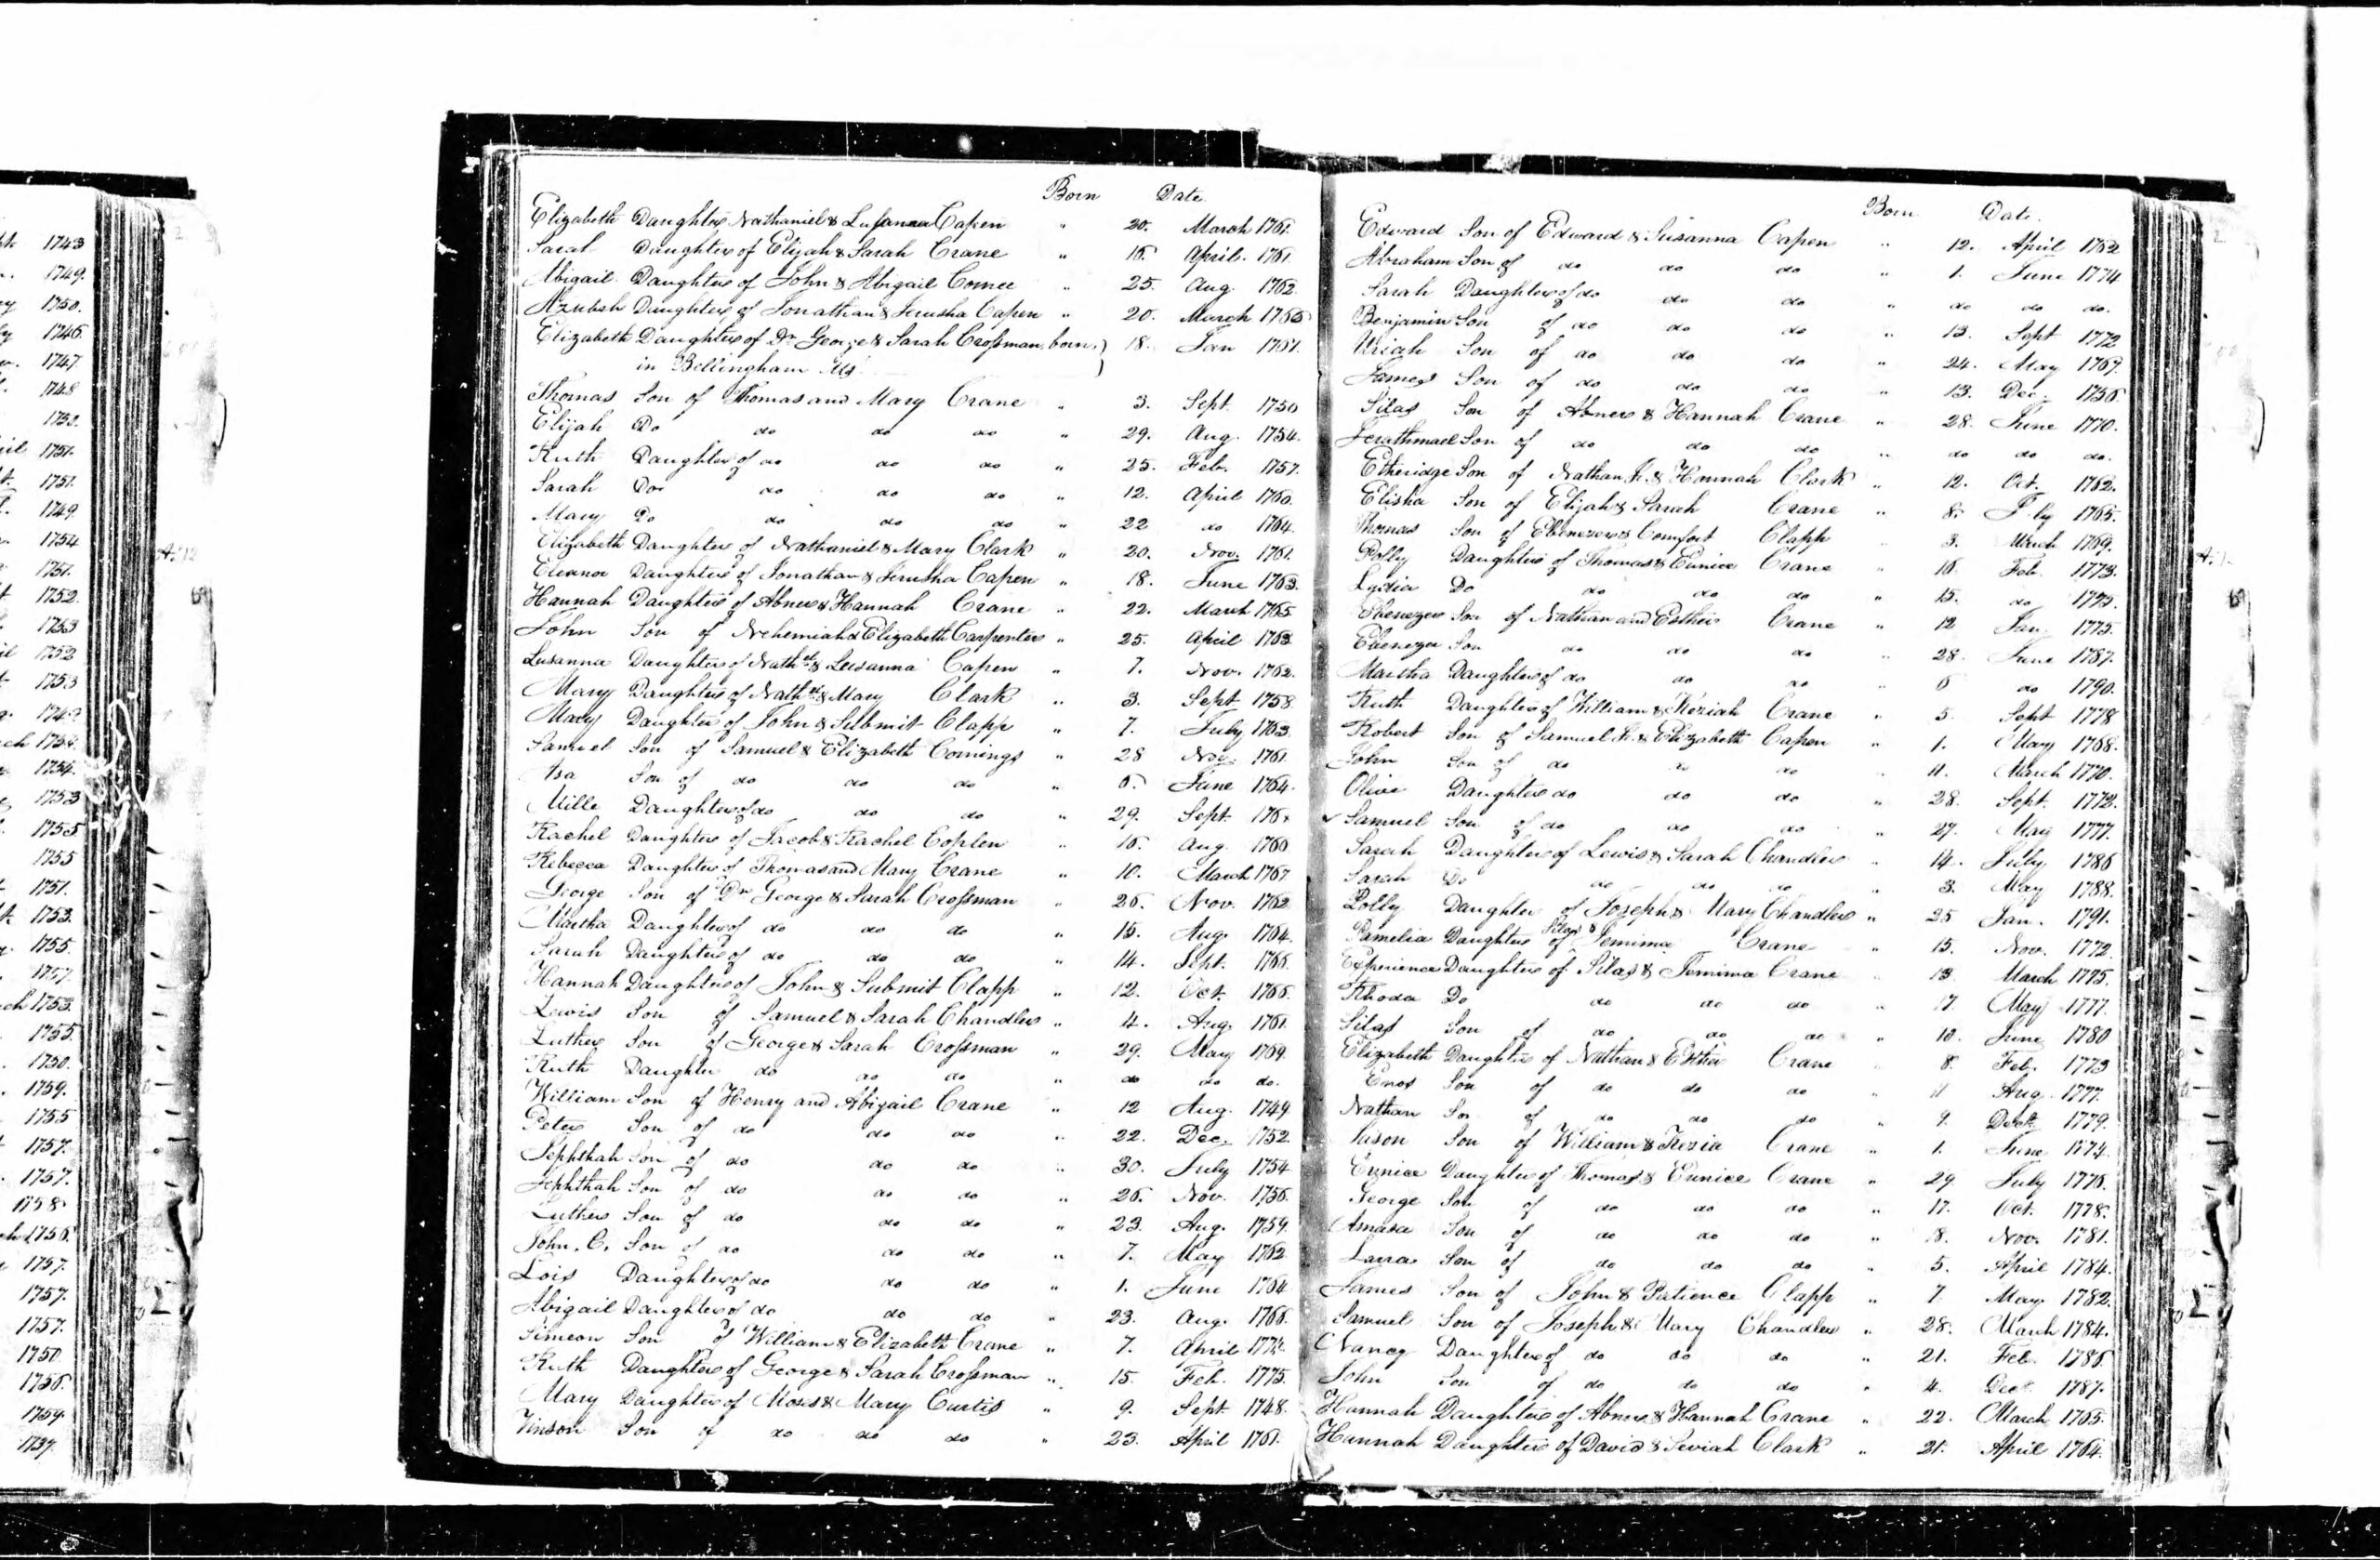 1743
1749.
1750.
1746.
1747.
1748
1752.
1751.
1751.
1749.
1754
1751.
1752.
1753
1752
1753
1754.
1753
1755
1755
1751.
1753.
1755.
1757.
1753.
1755.
1750.
1759.
1755
1757.
1757.
1758
1756.
1757.
1757.
1757.
1750
1756.
1759.
Born Date.
Elizabeth Daughter Nathaniel & Lusanna Capen " 20. March 1761.
Sarah Daughter of Elijah & Sarah Crane " 16. April. 1761.
Abigail Daughter of John & Abigail Comee " 25. Aug. 1762.
Azubah Daughter of Jonathan & Jerusha Capen " 20. March
Elizabeth Daughter of Dr. George & Sarah Crossman born. 18. Jan 1761.
in Bellingham
Thomas Son of Thomas and Mary Crane " 3. Sept. 1750
Elijah Do do do do " 29. Aug. 1754.
Ruth Daughter of do do do " 25. Feb. 1757.
Sarah Do do do do " 12. April 1760.
Mary Do do do do " 22 do 1764.
Elizabeth Daughter of Nathaniel & Mary Clark " 20. Nov. 1761.
Eleanor Daughter of Jonathan & Jerusha Capen " 18. June 1763.
Hannah Daughter of Abner & Hannah Crane " 22. March 1765.
John Son of Nehemiah & Elizabeth Carpenter " 25. April 1763.
Lusanna Daughter of Nathel & Lusanna Capen " 7. Nov. 1762.
Mary Daughter of Nathel & Mary Clark " 3. Sept. 1758.
Mary Daughter of John & Submit Clapp " 7. July 1763.
Samuel Son of Samuel & Elizabeth Comings " 28 Nov. 1761.
Asa Son of do do do " 6. June 1764.
Mille Daughter of do do do " 29. Sept.
Rachel Daughter of Jacob & Rachel Coplen " 16. Aug. 1766
Rebecca Daughter of Thomas and Mary Crane " 10. March 1767
George Son of Dr. George & Sarah Crossman " 26. Nov. 1762
Martha Daughter of do do do " 15. Aug. 1764.
Sarah Daughter of do do do " 14. Sept. 1766.
Hannah Daughter of John & Submit Clapp " 12. Oct. 1766.
Lewis Son of Samuel & Sarah Chandler " 4. Aug. 1761.
Luther Son of George & Sarah Crossman " 29. May 1769.
Ruth Daughter do do do " do do do.
William Son of Henry and Abigail Crane " 12 Aug. 1749.
Peter Son of do do do " 22. Dec. 1752.
Jephthah Son of do do do " 30. July 1754
Jephthah Son of do do do " 26. Nov. 1756.
Luther Son of do do do " 23. Aug. 1759.
John. C. Son of do do do " 7. May 1762
Lois Daughter of do do do " 1. June 1764
Abigail Daughter of do do do " 23. Aug. 1766.
Simeon Son of William & Elizabeth Crane " 7. April 1774.
Ruth Daughter of George & Sarah Crossman " 15. Feb. 1775.
Mary Daughter of Moses & Mary Curtis " 9. Sept. 1748.
Vinson Son of do do do " 23. April 1761.
Born Date.
Edward Son of Edward & Susanna Capen " 12. April 1762
Abraham Son of do do do " 1. June 1774
Sarah Daughter of do do do " do do do.
Benjamin Son of do do do " 13. Sept 1772
Uriah Son of do do do " 24. May 1767.
James Son of do do do " 13. Dec. 1756.
Silas Son of Abner & Hannah Crane " 28. June 1770.
Jerathmael Son of do do do " do do do.
Etheridge Son of Nathan Jr. & Hannah Clark " 12. Oct. 1762.
Elisha Son of Elijah & Sarah Crane " 8. 1765.
Thomas Son of Ebenezer & Comfort Clapp 3. March 1769.
Polly Daughter of Thomas & Eunice Crane " 16. Feb. 1773.
Lydia Do do do do " 15. do 1775.
Ebenezer Son of Nathan and Esther Crane " 12 Jan. 1775.
Ebenezer Son do do do " 28. June 1787.
Martha Daughter of do do do " 6 do 1790.
Ruth Daughter of William & Keziah Crane " 5. Sept 1778
Robert Son of Samuel Jr. & Elizabeth Capen " 1. May 1768.
John Son of do do do " 11. March 1770.
Olive Daughter do do do " 28. Sept. 1772.
Samuel Son of do do do " 27. May 1777.
Sarah Daughter of Lewis & Sarah Chandler " 14. July 1786
Sarah Do do do do " 3. May 1788.
Polly Daughter of Joseph & Mary Chandler " 25 Jan. 1791.
Pamelia Daughter of Silas & Jemima Crane " 15. Nov. 1772.
Experience Daughter of Silas & Jemima Crane " 13. March 1775.
Rhoda Do do do do " 17. May 1777.
Silas Son of do do do " 10. June 1780
Elizabeth Daughter of Nathan & Esther Crane " 8. Feb. 1773
Enos Son of do do do " 11 Aug. 1777.
Nathan Son of do do do " 9. Dec. 1779.
Son of William & Kezia Crane " 1. June 1774.
Eunice Daughter of Thomas & Eunice Crane " 29 July 1776.
George Son of do do do " 17. Oct. 1778.
Amasa Son of do do do " 18. Nov. 1781.
Son of do do do " 5. April 1784.
James Son of John & Patience Clapp " 7 May 1782.
Samuel Son of Joseph & Mary Chandler " 28. March 1784.
Nancy Daughter of do do do " 21. Feb. 1786.
John Son of do do do " 4. Dec. 1787.
Hannah Daughter of Abner & Hannah Crane " 22. March 1765.
Hannah Daughter of David & Seviah Clark " 21. April 1764.